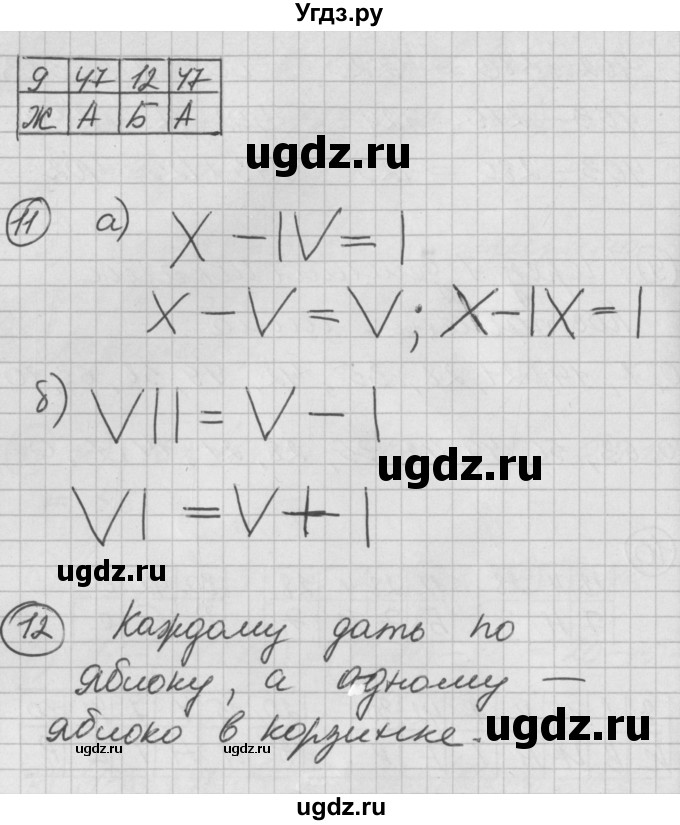 Угдз.ру
9 47 12 47
Ж А Б А
ugdz.ru
11 а) X - IV = I
X - V = V; X - IX = I
б) VII = V - I
ugdz.ru
VI = V + I
ugdz.ru
12 Каждому дать по
яблоку, а одному —
яблоко в корзинке.
ugdz.ru
ugdz.ru
ugdz.ru
ugdz.ru